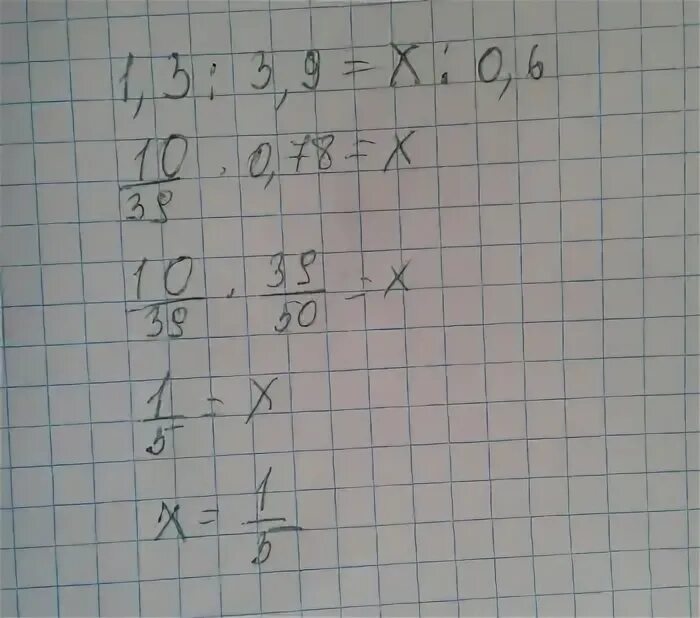 1,3 : 3,9 = x : 0,6
10/39 · 0,78 = x
10/39 · 39/50 = x
1/5 = x
x = 1/5